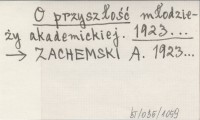 O przyszłość młodzie-
ży akademickiej. 1923...
→ ZACHEMSKI A. 1923...